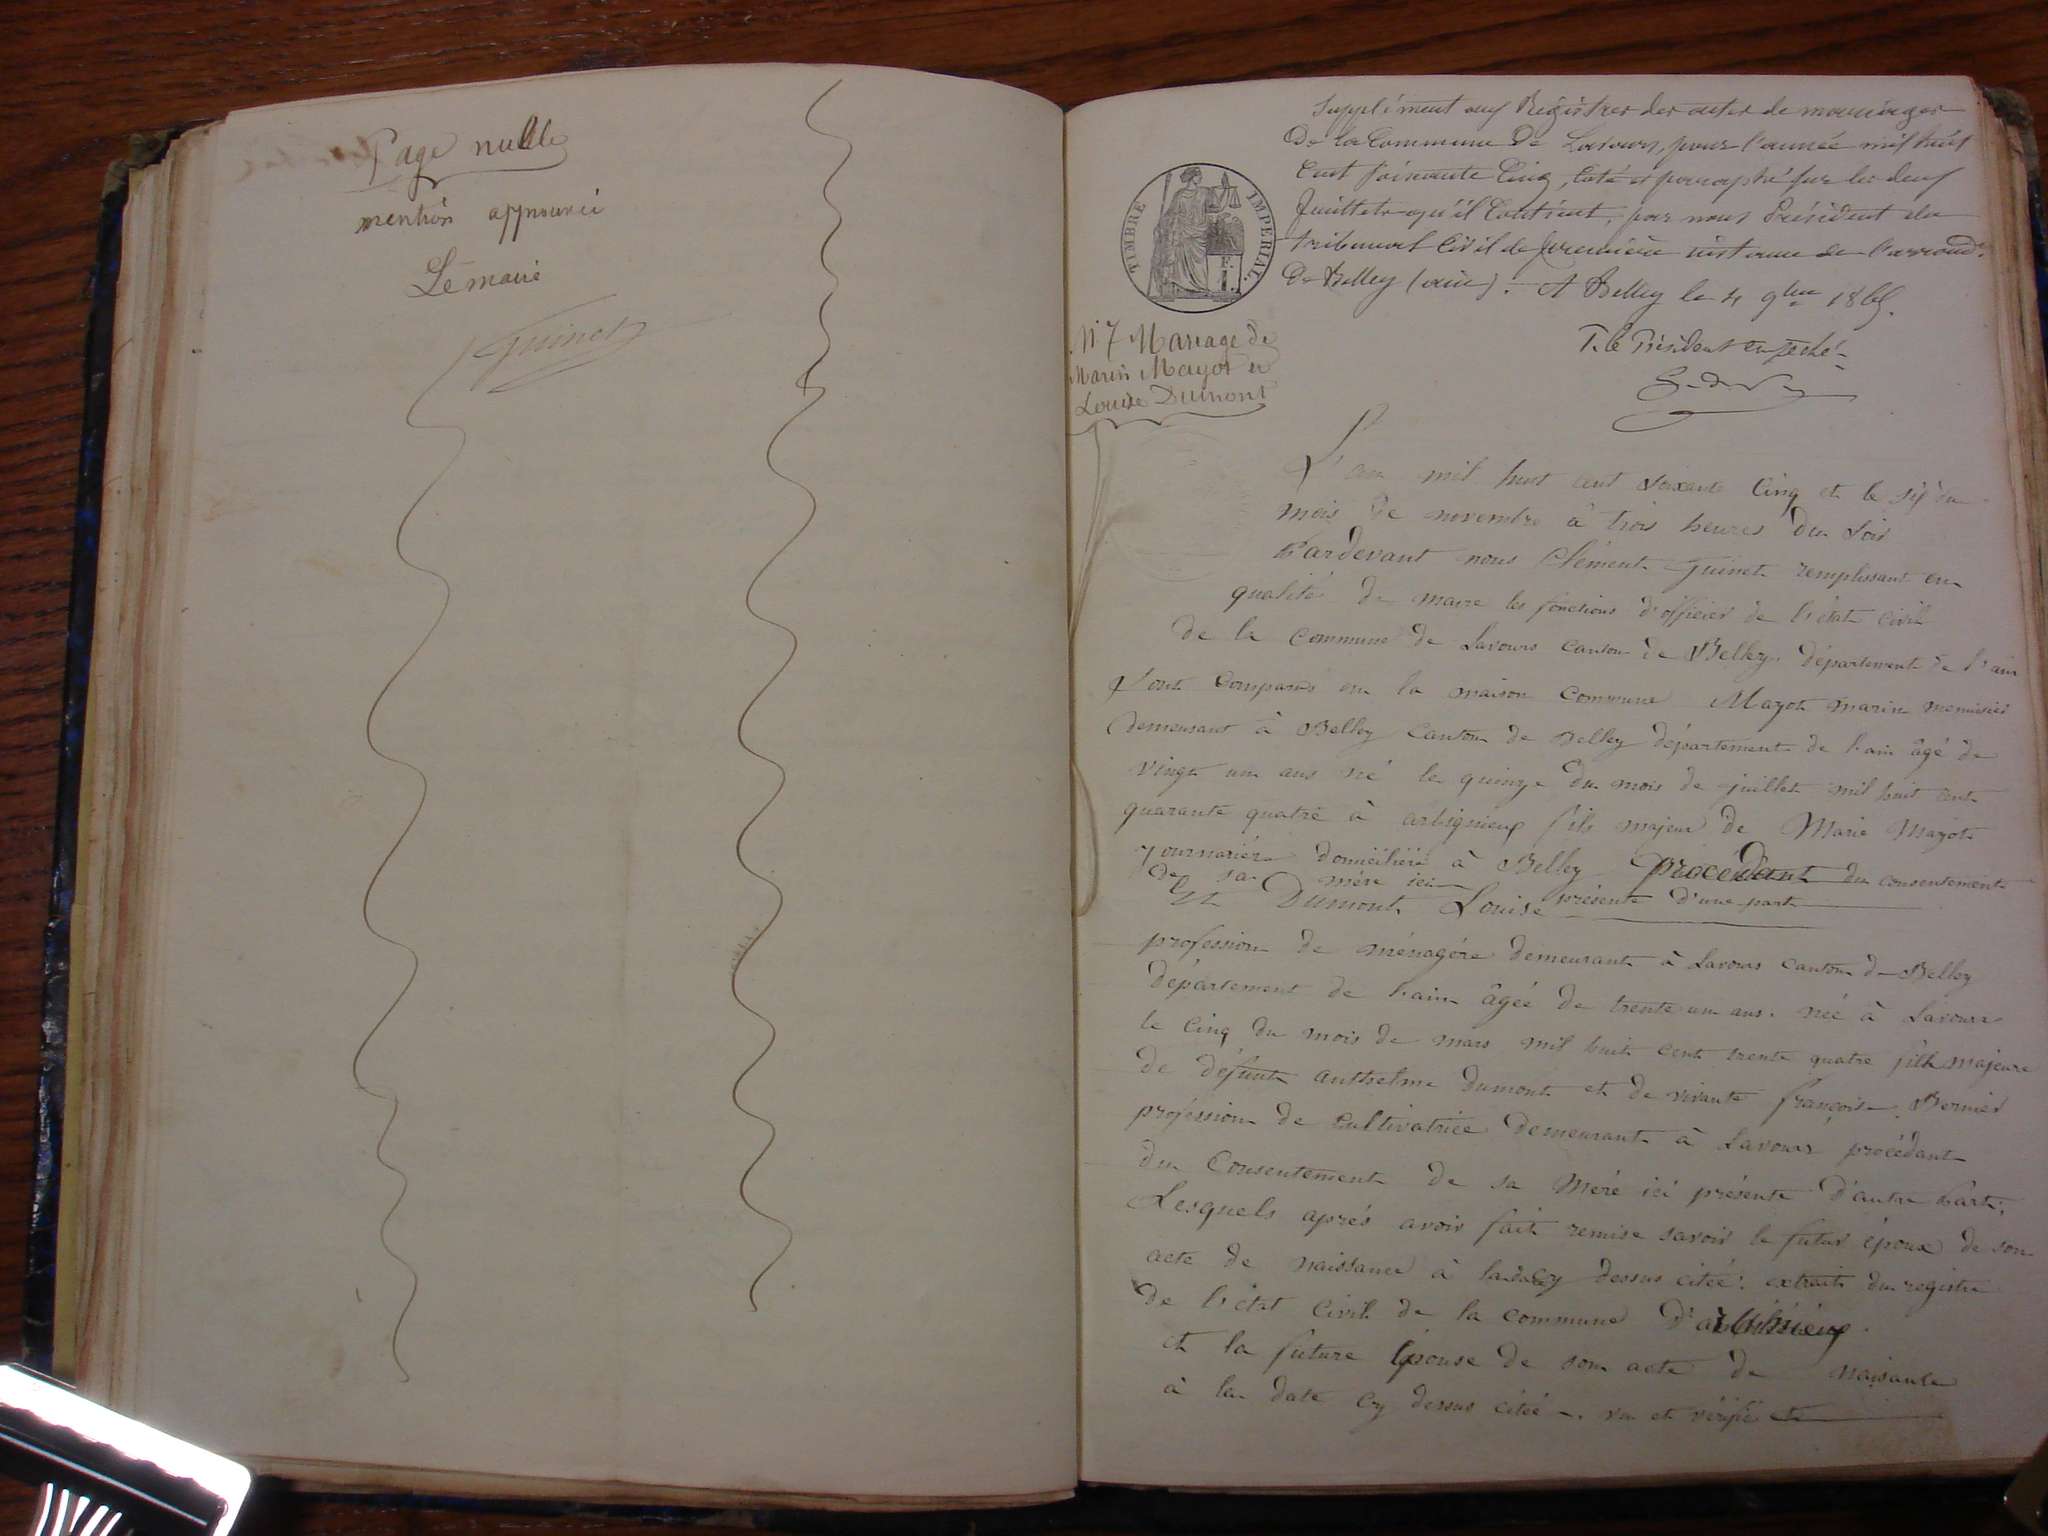 Page nulle
mention approuvée
Le maire
Guinet
Supplément aux Registres des actes de mariages
De la Commune De Lavours, pour l'année mil huit
Cent soixante Cinq, coté et paraphé sur les deux
feuillets qu'il Contient, par nous Président du
tribunal Civil de première instance de l'arrond.t
De Belley (ain). A Belley le 4 9bre 1865.
P. le Président empêché
TIMBRE IMPERIAL
F.
1.
N° 7 Mariage de
Marin Mayot et
Louise Dumont
L'an mil huit cent soixante Cinq et le six du
mois de novembre à trois heures du soir
Pardevant nous Clément Guinet remplissant en
qualité de maire les fonctions d'officier de l'état civil
de la commune de Lavours canton de Belley département de l'ain
sont comparus en la maison commune Mayot marin menuisier
demeurant à Belley canton de Belley département de l'ain âgé de
vingt un ans né le quinze du mois de juillet mil huit cent
quarante quatre à arbignieux fils majeur de Marie Mayot
journalière domiciliée à Belley procédant du consentement
de sa mère ici présente d'une part
Et Dumont Louise
profession de ménagère demeurant à Lavours canton de Belley
département de l'ain âgée de trente un ans. née à Lavours
le cinq du mois de mars mil huit cent trente quatre fille majeure
de défunt anthelme Dumont et de vivante françoise Bernier
profession de cultivatrice demeurant à Lavours procédant
du Consentement de sa Mère ici présente d'autre part.
Lesquels après avoir fait remise savoir le futur époux de son
acte de naissance à la date cy dessus citée: extrait du registre
de l'état civil de la commune d'arbignieux
et la future épouse de son acte de naisance
à la date cy dessus citée. vu et vérifié et